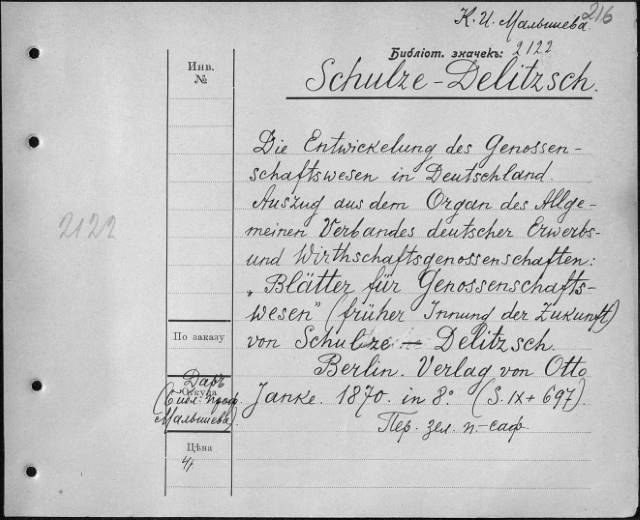 К. И. Малышева. 216
Библіот. значекъ: 2122
Schulze-Delitzsch.
Инв.
№
Die Entwickelung des Genossen-
schaftswesen in Deutschland.
Auszug aus dem Organ des Allge-
meinen Verbandes deutscher Erwerbs-
und Wirthschaftsgenossenschaften:
„Blätter für Genossenschafts-
wesen" (früher Innung der Zukunft)
von Schulze — Delitzsch.
Berlin. Verlag von Otto
Janke. 1870. in 8° (S. IX + 697).
Пер. зел. п.-саф.
2122
По заказу
Даръ
Откуда
(Библ. проф.
Малышева).
Цѣна